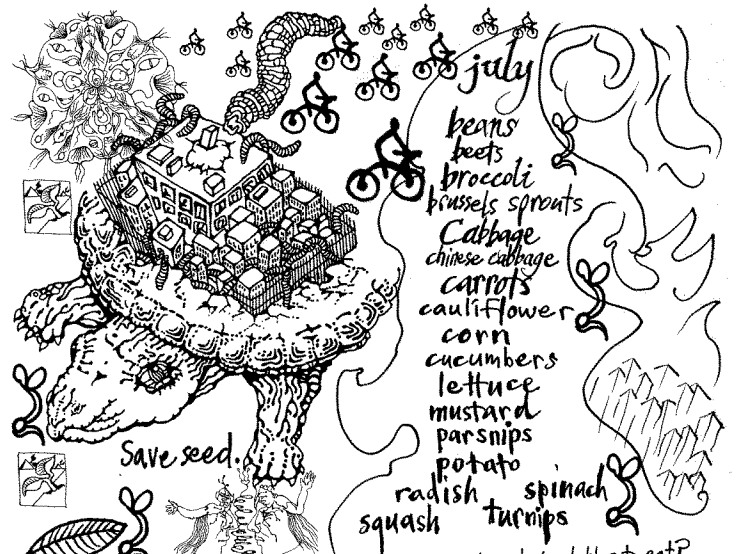 july
beans
beets
broccoli
brussels sprouts
Cabbage
chinese cabbage
carrots
cauliflower
corn
cucumbers
lettuce
mustard
parsnips
potato
radish spinach
squash turnips
Save seed.